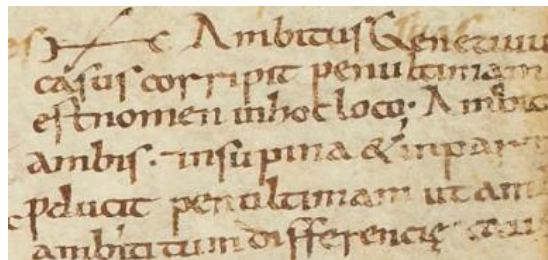 Ambitus Genetiuu
casus corripit penultimam
est nomen in hoc loco; Ambit
ambis. insupina & inpart
pducit penultimam ut am
ambiti tum differencię